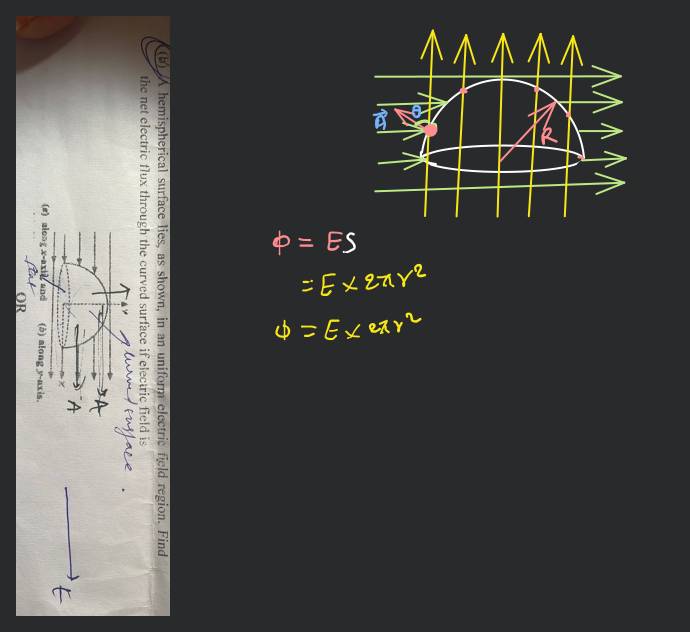 (b) A hemispherical surface lies, as shown, in an uniform electric field region. Find
the net electric flux through the curved surface if electric field is
y
curved surface.
A
A
x
(a) along x-axis and (b) along y-axis.
flat
OR
E
A
θ
R
ϕ = ES
= E × 2πr²
ϕ = E × 2πr²